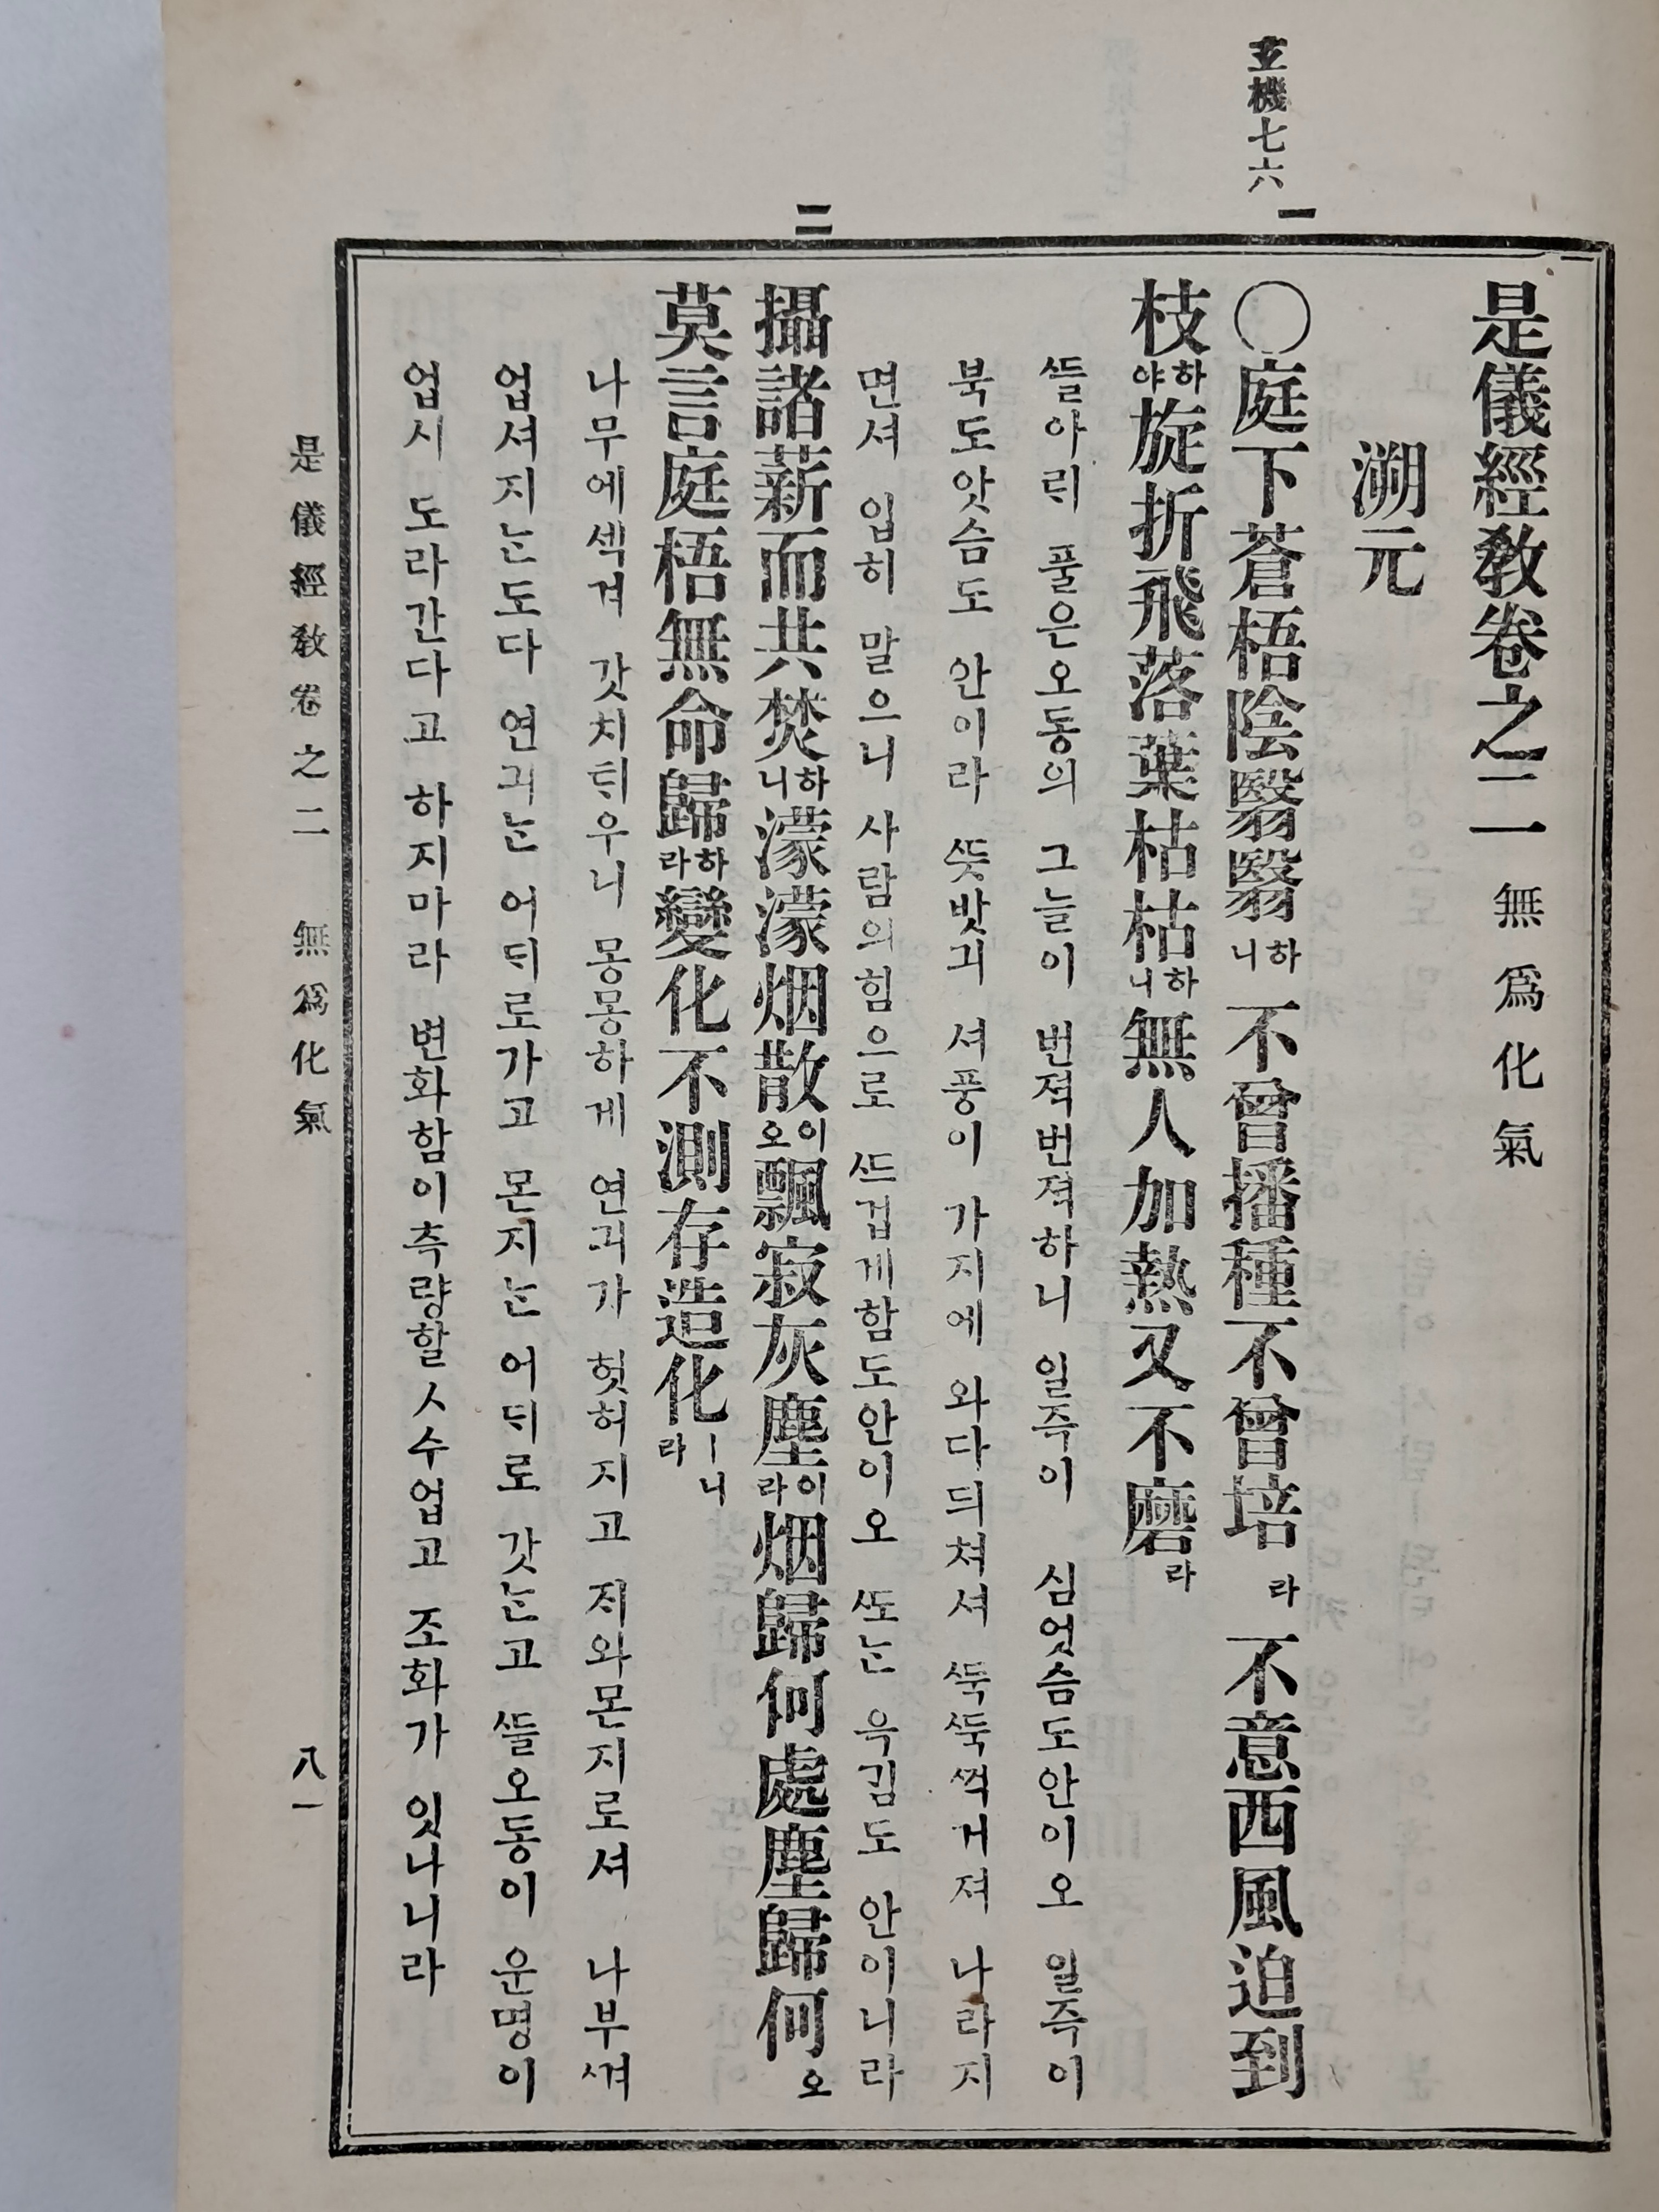 玄機七六
一
二
是儀經敎卷之二 無爲化氣
溯元
〇庭下蒼梧陰翳翳하니 不曾播種不曾培라 不意西風迫到
枝하야旋折飛落葉枯枯하니無人加熱又不磨라
ᄯᅳᆯ아ᄅᆡ 풀은오동의 그늘이 번젹번젹하니 일즉이 심엇슴도안이오 일즉이
북도앗슴도 안이라 ᄯᅳᆺ밧긔 셔풍이 가지에 와다듸쳐셔 ᄯᅮᆨᄯᅮᆨᄭᅥᆨ거져 나라지
면셔 입히 말으니 사람의힘으로 ᄯᅳ겁게함도안이오 ᄯᅩᄂᆞᆫ 윽김도 안이니라
攝諸薪而共焚하니濛濛烟散이오飄寂灰塵이라烟歸何處塵歸何오
莫言庭梧無命歸하라變化不測存造化ㅣ니라
나무에셕겨 갓치ᄐᆡ우니 몽몽하게 연긔가 헛허지고 ᄌᆡ와몬지로셔 나부ᄭᅧ
업셔지ᄂᆞᆫ도다 연긔ᄂᆞᆫ 어ᄃᆡ로가고 몬지ᄂᆞᆫ 어ᄃᆡ로 갓ᄂᆞᆫ고 ᄯᅳᆯ오동이 운명이
업시 도라간다고 하지마라 변화함이측량할ㅅ수업고 조화가 잇나니라
是儀經敎卷之二 無爲化氣 八一